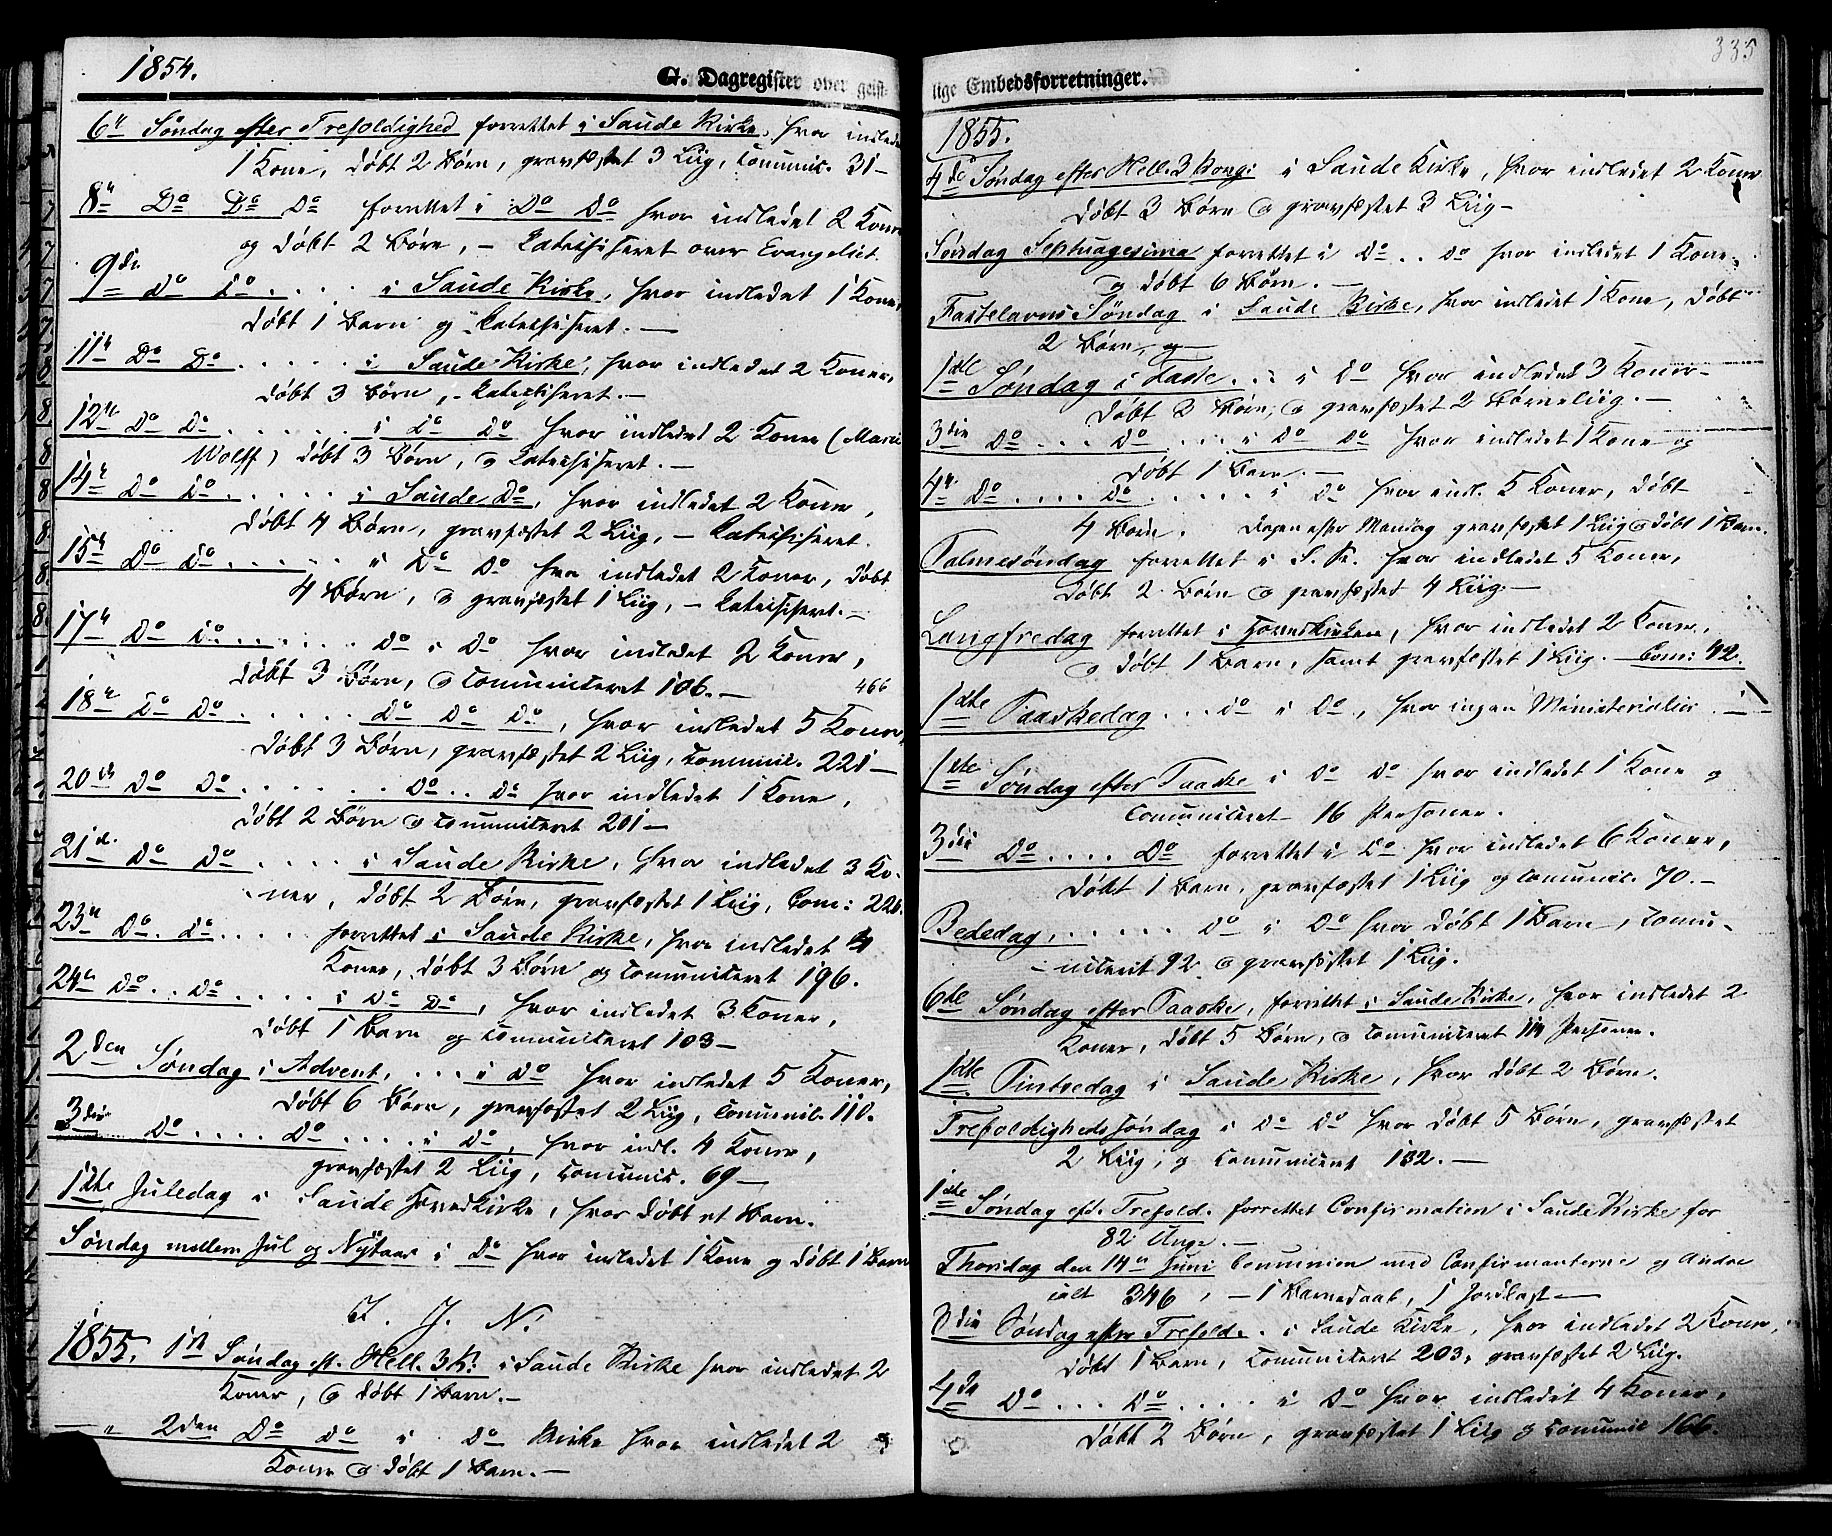 1854.
G. Dagregister over geist-
6te Søndag efter Trefoldighed forrettet i Saude Kirke, hvor indledet
1 Kone, døbt 2 Børn, gravfæstet 3 Liig, Comunic. 31 –
8de Do Do Do forrettet i Do Do hvor indledet 2 Koner
og døbt 2 Børn, – Catechiseret over Evangeliet.
9de Do Do . . . . i Saude Kirke, hvor indledet 1 Kone,
døbt 1 Barn og Catechiseret. –
11te Do Do . . . . . i Saude Kirke, hvor indledet 2 Koner,
døbt 3 Børn, – Catechiseret. –
12te Do Do . . . . . . i Do Do hvor indledet 2 Koner (Marie
Wolff) døbt 3 Børn, og Catechiseret. –
14de Do Do . . . . . i Saude Do, hvor indledet 2 Koner,
døbt 4 Børn, gravfæstet 2 Liig, – Catechiseret.
15de Do Do . . . . . i Do Do hvor indledet 2 Koner, døbt
4 Børn, og gravfæstet 1 Liig, – Catechiseret. –
17de Do Do . . . . . Do i Do hvor indledet 2 Koner,
døbt 3 Børn, og Comuniceret 106. –
466
18de Do Do . . . . . Do Do Do, hvor indledet 5 Koner,
døbt 3 Børn, gravfæstet 2 Liig, Communic. 221 –
20de Do Do . . . . . . Do . . Do hvor indledet 1 Kone,
døbt 2 Børn og Comuniceret 201 –
21de Do Do . . . . i Saude Kirke, hvor indledet 3 Ko-
ner, døbt 2 Børn, gravfæstet 1 Liig, Com: 226.
23de Do. Do . . . . forrettet i Saude Kirke, hvor indledet 4
Koner, døbt 3 Børn og Comuniceret 196.
24de Do . . Do . . . . i Do Do, hvor indledet 3 Koner,
døbt 1 Barn og Comuniceret 103 –
2den Søndag i Advent, . . . i Do hvor indledet 5 Koner,
døbt 6 Børn, gravfæstet 2 Liig, Comunic. 110.
3die Do . . . . Do . . . . i Do, hvor indl. 4 Koner,
gravfæstet 2 Liig, Comunic. 69 –
1ste Juledag i Saude Hovedkirke, hvor døbt et Barn.
Søndag mellem Jul og Nytaar i Do hvor indledet 1 Kone og døbt 1 Barn
I. J. N.
1855. 1ste Søndag ef. Hell. 3 K: i Saude Kirke hvor indledet 2
Koner, og døbt 1 Barn. –
– " 2den Do Do i Do Kirke hvor indledet 2
Koner og døbt 1 Barn. –
335
lige Embedsforretninger.
1855.
4de Søndag efter Hell. 3 Kong: i Saude Kirke, hvor indledet 2 Koner
døbt 3 Børn og gravfæstet 3 Liig –
Søndag Septuagesima forrettet i Do . . Do hvor indledet 1 Kone,
og døbt 6 Børn. –
Fastelavns Søndag i Saude Kirke, hvor indledet 1 Kone, døbt
2 Børn, og –
1ste Søndag i Faste . . . i Do hvor indledet 3 Koner –
døbt 3 Børn, og gravfæstet 2 Børneliig. –
3die Do . . . Do . . . . i Do Do hvor indledet 1 Kone og
døbt 1 Barn. –
4de Do . . . . Do . . . . . i Do hvor indl. 5 Koner, døbt
4 Børn. Dagen efter Mandag gravfæstet 1 Liig og døbt 1 Barn.
Palmesøndag forrettet i S. K. hvor indledet 5 Koner,
døbt 2 Børn og gravfæstet 4 Liig –
Langfredag forrettet i Hovedkirken, hvor indledet 2 Koner,
og døbt 1 Barn, samt gravfæstet 1 Liig. – Com: 42.
1ste Paaskedag . . . Do i Do, hvor ingen Ministerialier. –
1ste Søndag efter Paaske i Do Do hvor indledet 1 Kone og
Comuniceret – 16 Personer.
3die Do . . . . Do forrettet i Do hvor indledet 6 Koner,
døbt 1 Barn, gravfæstet 1 Liig og Comunic. 70. –
Bededag, . . . . . Do i Do hvor døbt 1 Barn, Comu-
-niceret 92 og gravfæstet 1 Liig.
6te Søndag efter Paaske, forrettet i Saude Kirke, hvor indledet 2
Koner, døbt 5 Børn, og Comuniceret 114 Personer.
1ste Pintsedag i Saude Kirke, hvor døbt 2 Børn.
Trefoldigheds Søndag i Do Do hvor døbt 5 Børn, gravfæstet
2 Liig, og Comuniceret 132. –
1ste Søndag eft. Trefold. forrettet Confirmation i Saude Kirke for
82 Unge. –
Thorsdag den 14de Juni Communion med Confirmanterne og Andre
ialt 346, – 1 Barnedaab, 1 Jordfæst –
3die Søndag efter Trefold. . i Saude Kirke, hvor indledet 2 Koner,
døbt 1 Barn, Comuniceret 203, gravfæstet 2 Liig.
4de Do . . . Do . . . . i Do hvor indledet 4 Koner,
døbt 2 Børn, gravfæstet 1 Liig og Comunic 166.